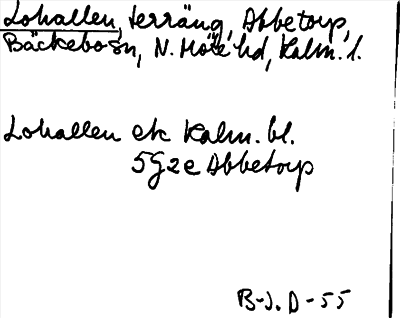 Lohallen, terräng, Abbetorp,
Bäckebo sn, N. Möre hd, Kalm. l.
Lohallen ek Kalm. bl.
5G2e Abbetorp
B-J. D-55